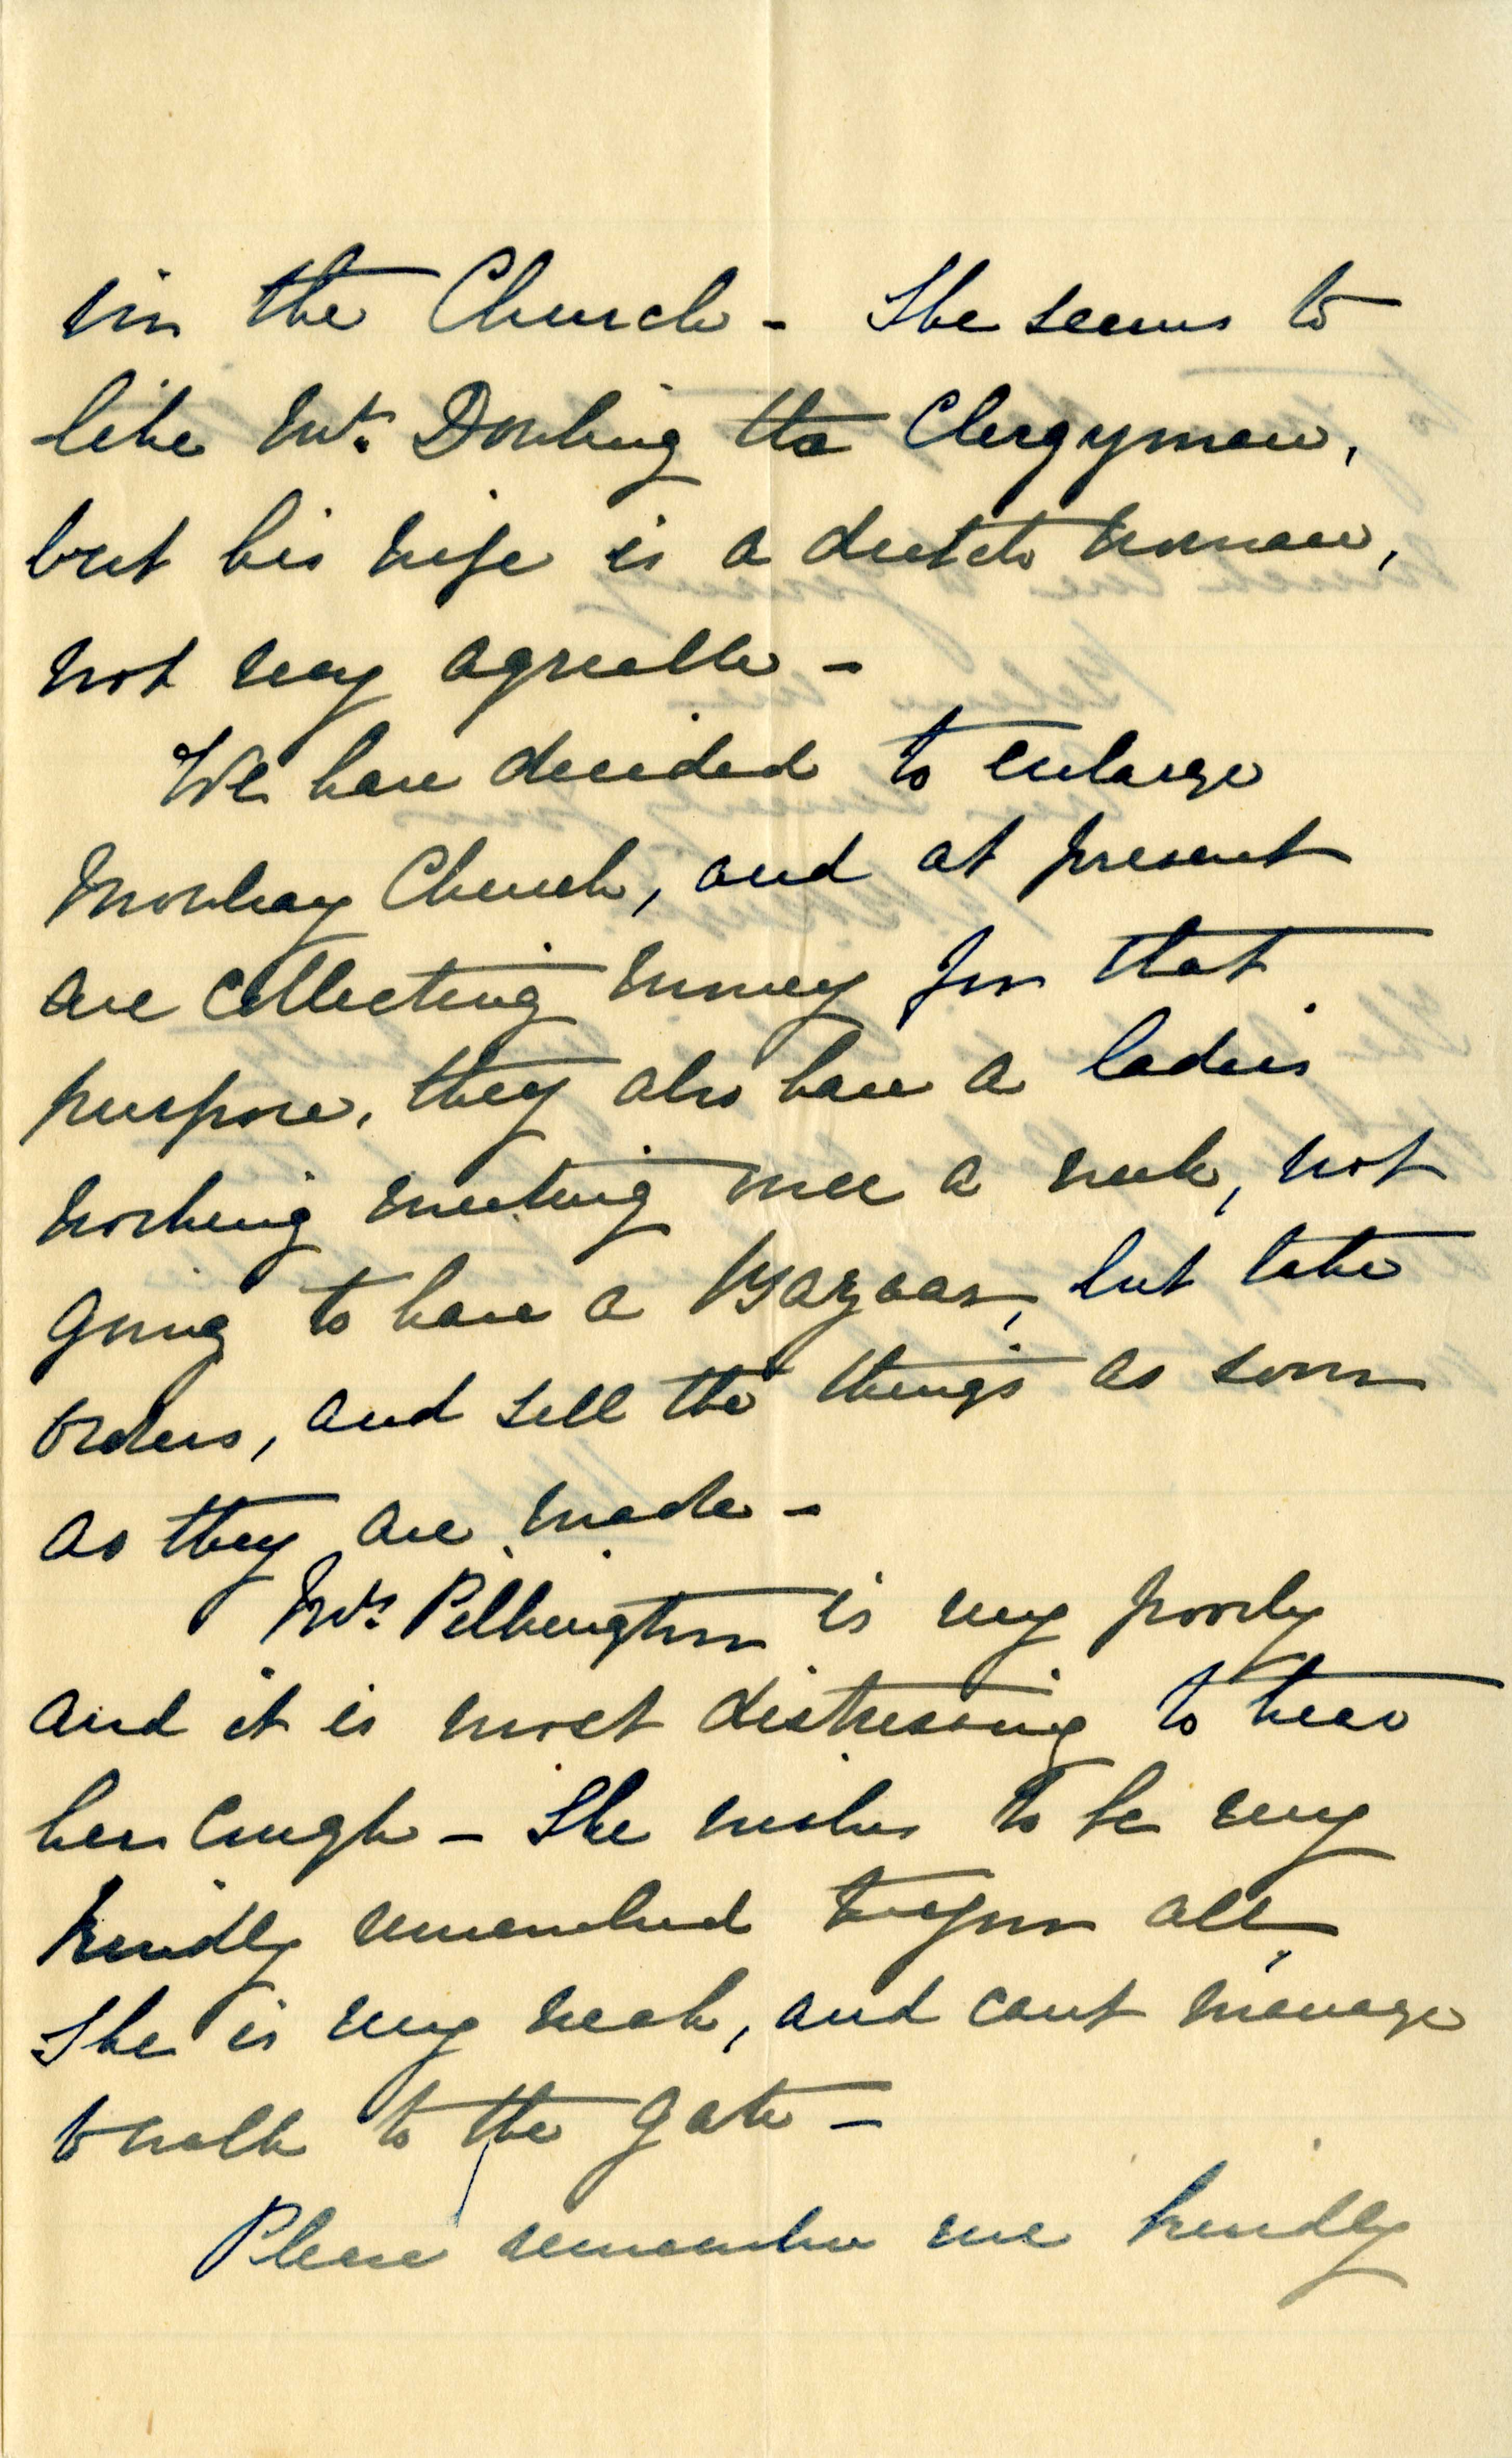 in the Church - She seems to
like Mr. Dowling the Clergyman,
but his wife is a dutch woman,
not very agreeable -
We have decided to enlarge
Mowbray Church, and at present
are collecting money for that
purpose, they also have a ladies
working meeting once a week, not
going to have a Bazaar, but take
orders, and sell the things as soon
as they are made -
Mrs. Pilkington is very poorly
and it is most distressing to hear
her cough - She wishes to be very
kindly remembered to you all
She is very weak, and cant manage
to walk to the gate -
Please remember me kindly